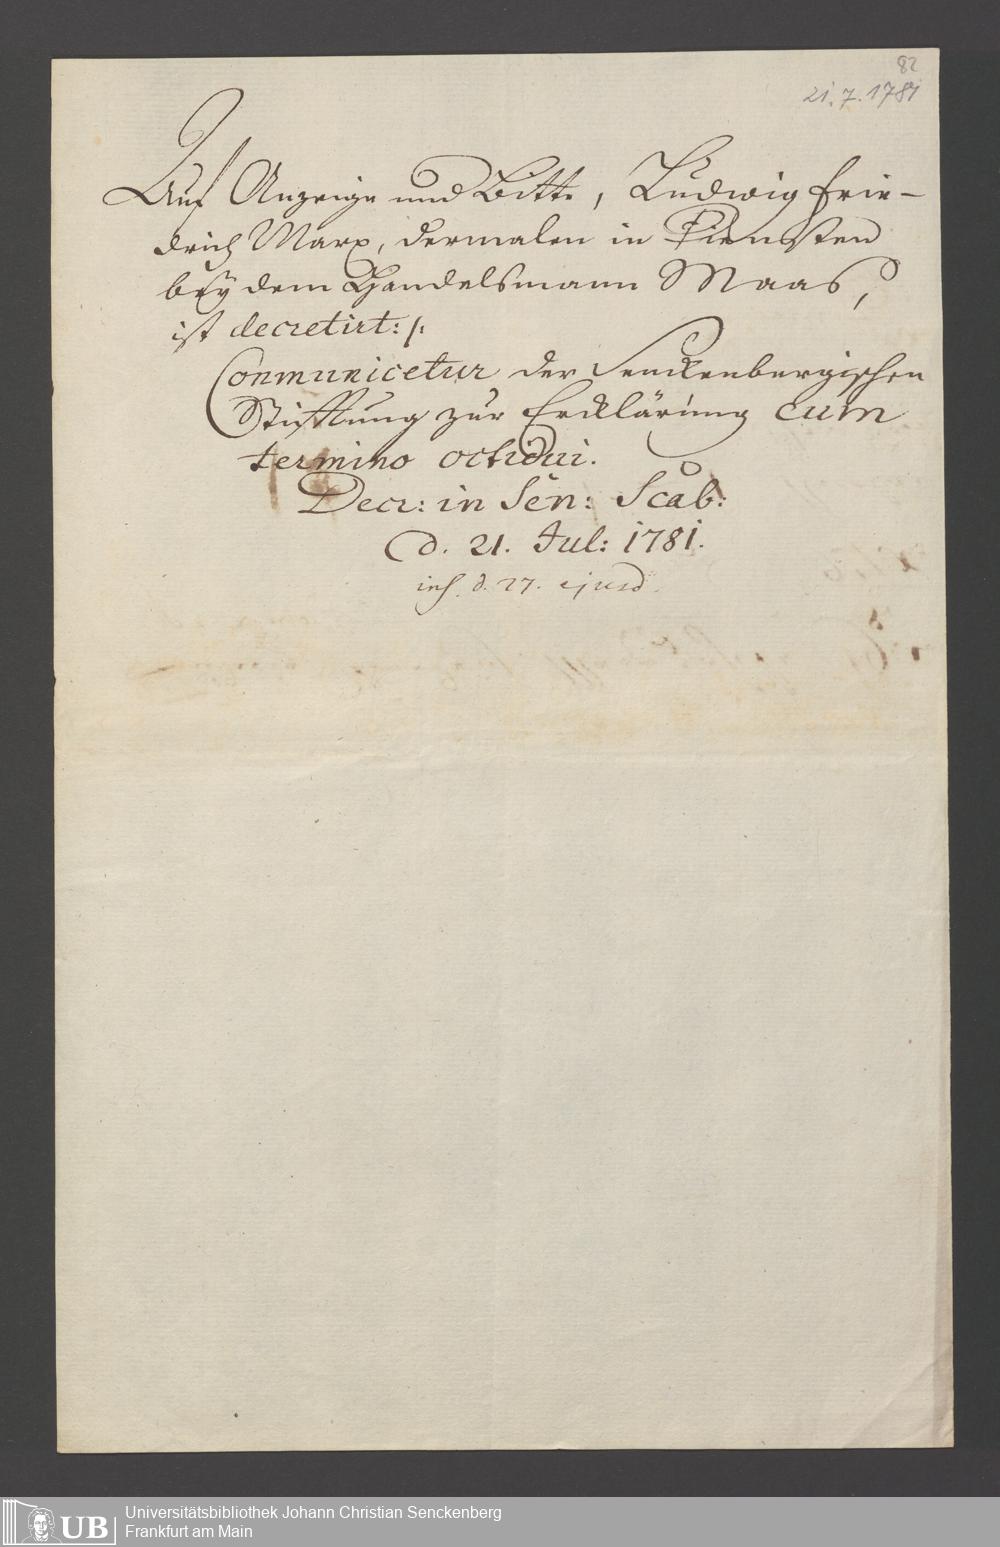 82
21.7.1781
Auf Anzeige und Bitte, Ludwig Frie-
drich Marx, dermalen in Diensten
bey dem Handelsmann Maas,
ist decretirt: /:
Communicetur der Senckenbergischen
Stifftung zur Erklärung cum
termino octidui.
Decr: in Sen: Scab:
d. 21. Jul: 1781.
ins. d. 27. ejusd.
UB
Universitätsbibliothek Johann Christian Senckenberg
Frankfurt am Main